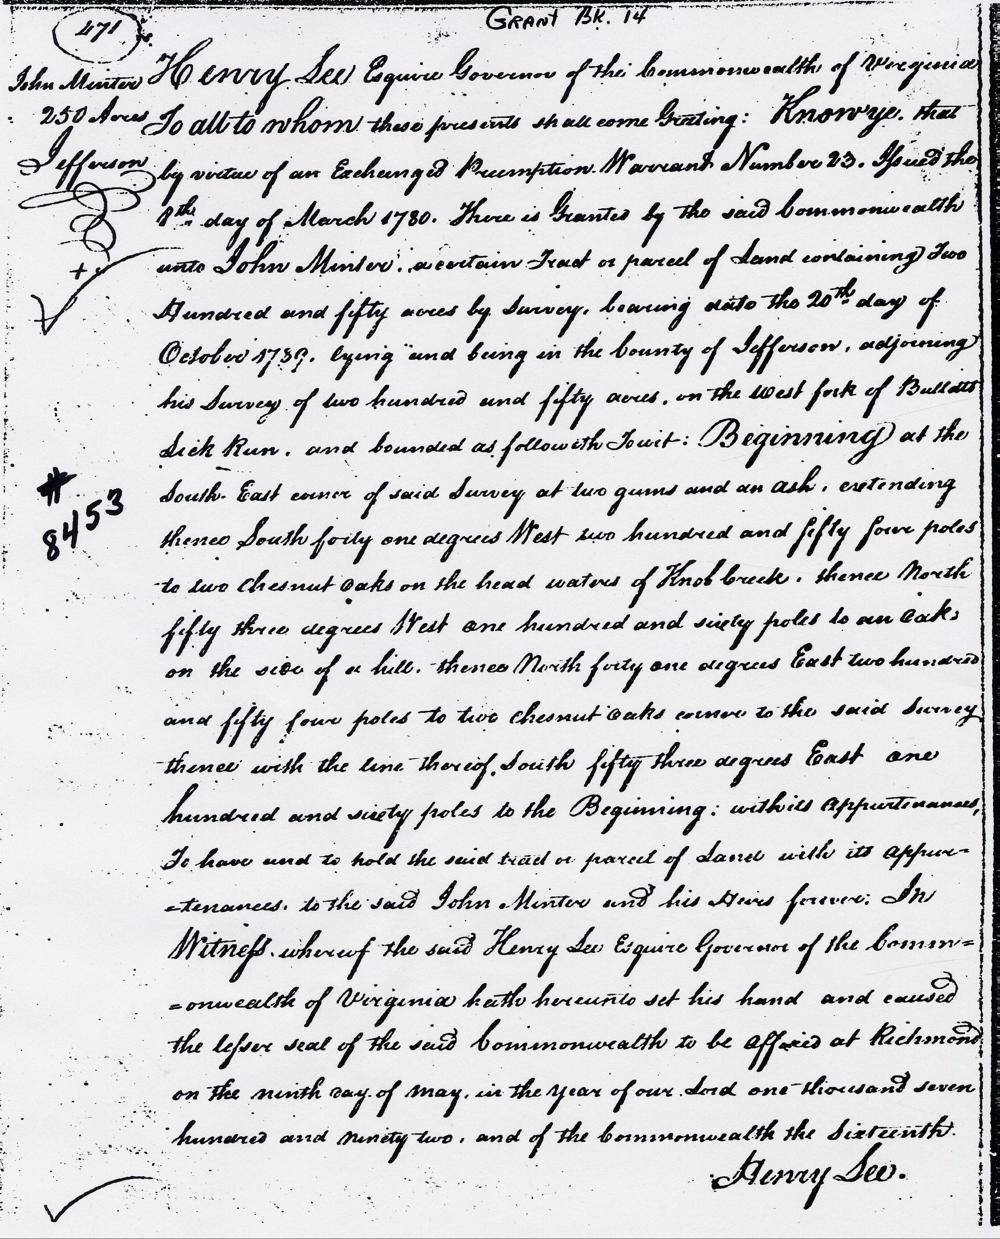 GRANT BK. 14
471
John Minter
250 Acres
Jefferson
#
8453
Henry Lee Esquire Governor of the Commonwealth of Virginia
To all to whom these presents shall come Greeting: Know ye. that
by virtue of an Exchanged Preemption Warrant Number 23. Issued the
day of March 1780. There is Granted by the said Commonwealth
unto John Minter, a certain Tract or parcel of Land containing Two
Hundred and fifty acres by Survey, bearing date the 20th day of
October lying and being in the County of Jefferson, adjoining
his Survey of two hundred and fifty acres, on the West fork of Bulletts
Lick Run, and bounded as followith Towit: Beginning at the
South-East corner of said Survey at two gums and an ash, extending
thence South forty one degrees West two hundred and fifty four poles
to two Chesnut Oaks on the head waters of Knob Creek. thence North
fifty three degrees West one hundred and sixty poles to an Oak
on the side of a hill. thence North forty one degrees East two hundred
and fifty four poles to two Chesnut Oaks corner to the said Survey
thence with the line thereof, South fifty three degrees East one
hundred and sixty poles to the Beginning: with its Appurtenances,
To have and to hold the said tract or parcel of Land with its appur=
=tenances. to the said John Minter and his Heirs forever: In
Witness whereof the said Henry Lee Esquire Governor of the Comm=
=onwealth of Virginia hath hereunto set his hand and caused
the lesser seal of the said Commonwealth to be affixed at Richmond
on the ninth day of May, in the year of our Lord one thousand seven
hundred and ninety two, and of the Commonwealth the Sixteenth.
Henry Lee.